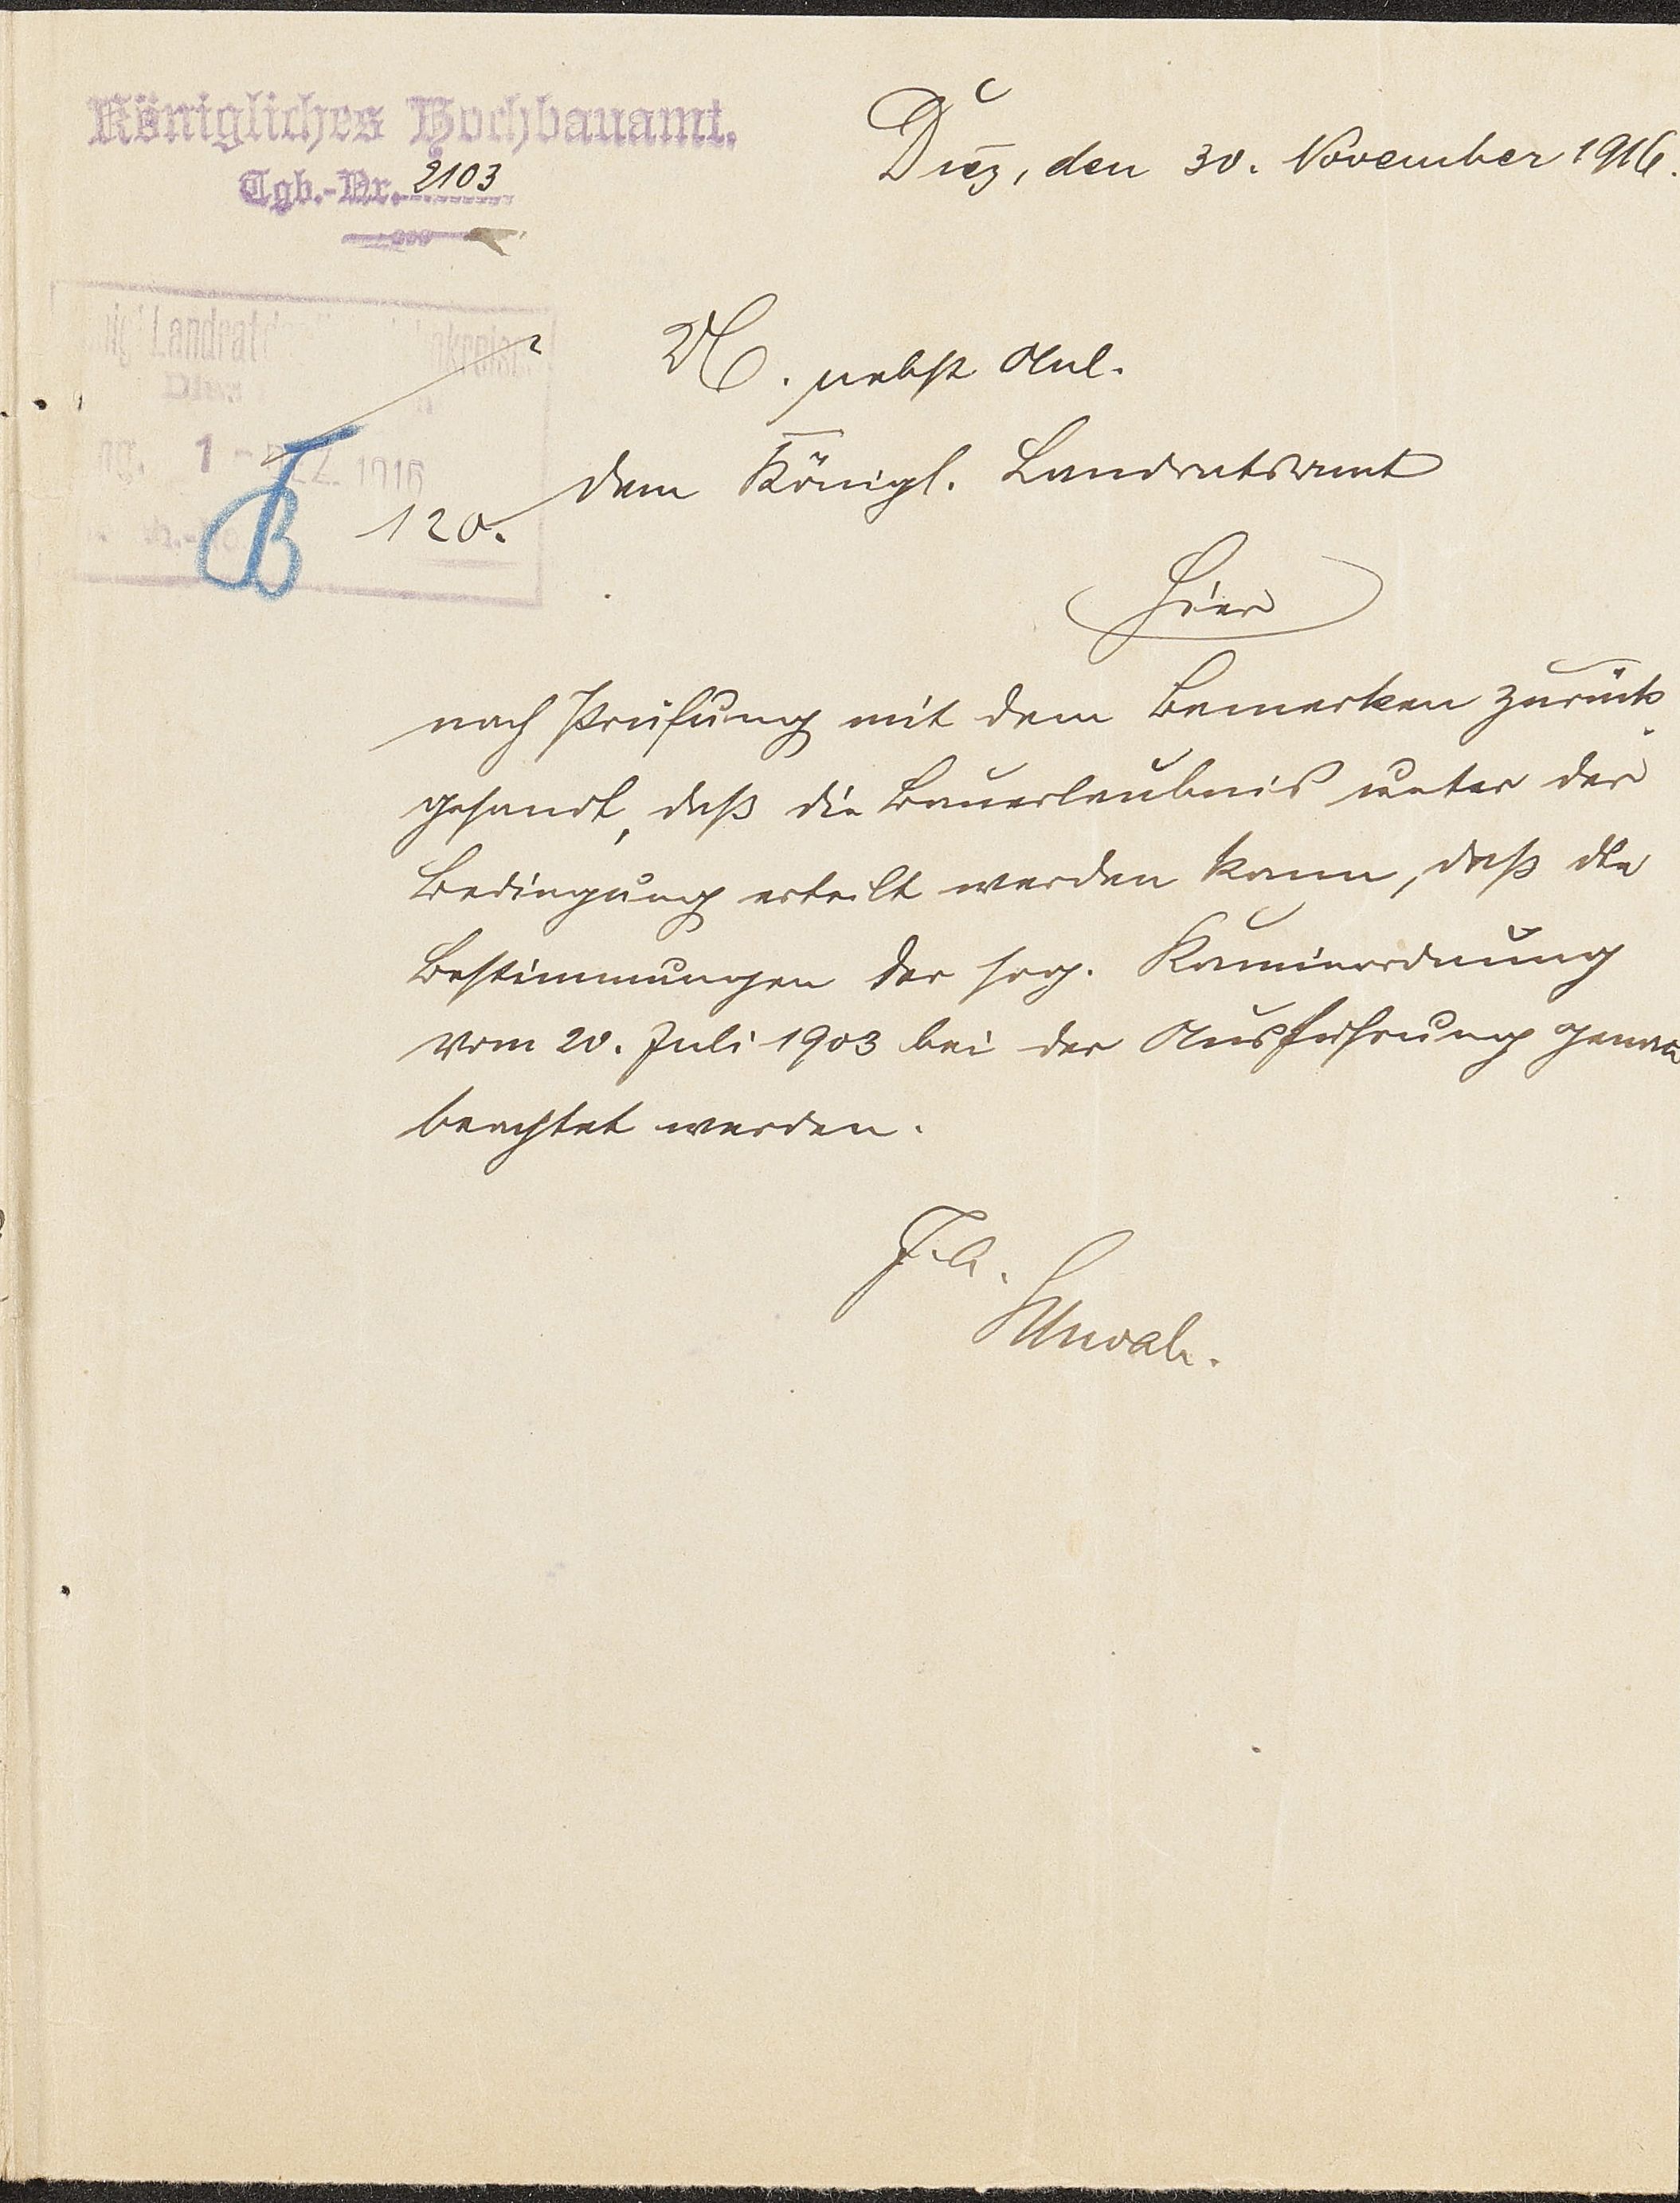 Königliches Hochbauamt.
Tgb.-Nr. 2103
Diez, den 30. November 1916.
Landrat
Diez
1 - DEZ. 1916
120.
U. nebst Anl.
dem Königl. Landratsamt
Hier
nach Prüfung mit dem Bemerken zurück
gesandt, daß die Bauerlaubnis unter der
Bedingung erteilt werden kann, daß die
Bestimmungen der sog. Kaminordnung
vom 20. Juli 1903 bei der Ausführung genau
beachtet werden.